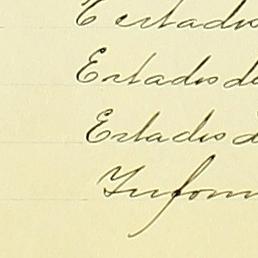 Estados
Estados de
Estados d
Inform